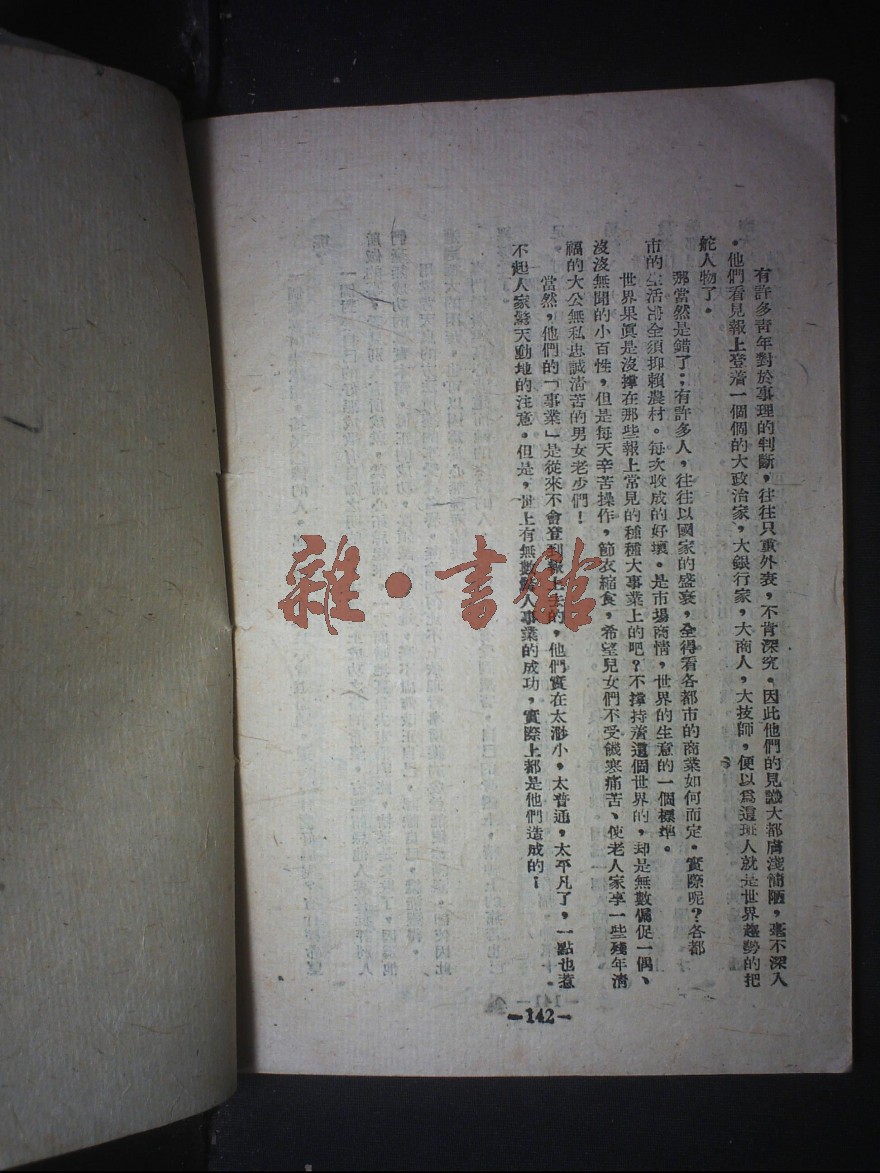 有許多青年對於事理的判斷，往往只重外表，不肯深究。因此他們的見識大都膚淺簡陋，毫不深入
。他們看見報上登着一個個的大政治家，大銀行家，大商人，大技師，便以爲這班人就是世界趨勢的把
舵人物了。
那當然是錯了；有許多人，往往以國家的盛衰，全得看各都市的商業如何而定。實際呢？各都
市的生活完全須抑賴農村。每次收成的好壞。是市場商情，世界的生意的一個標準。
世界果眞是沒撑在那些報上常見的種種大事業上的吧？不撑持着這個世界的，却是無數偏促一偶、
沒沒無聞的小百性，但是每天辛苦操作，節衣縮食，希望兒女們不受饑寒痛苦、使老人家享一些殘年淸
福的大公無私忠誠淸苦的男女老少們！
當然，他們的「事業」是從來不會登到報上去的，他們實在太渺小，太普通，太平凡了，一點也惹
不起人家驚天動地的注意。但是，世上有無數驚人事業的成功，實際上都是他們造成的！
—142—
雜·書館